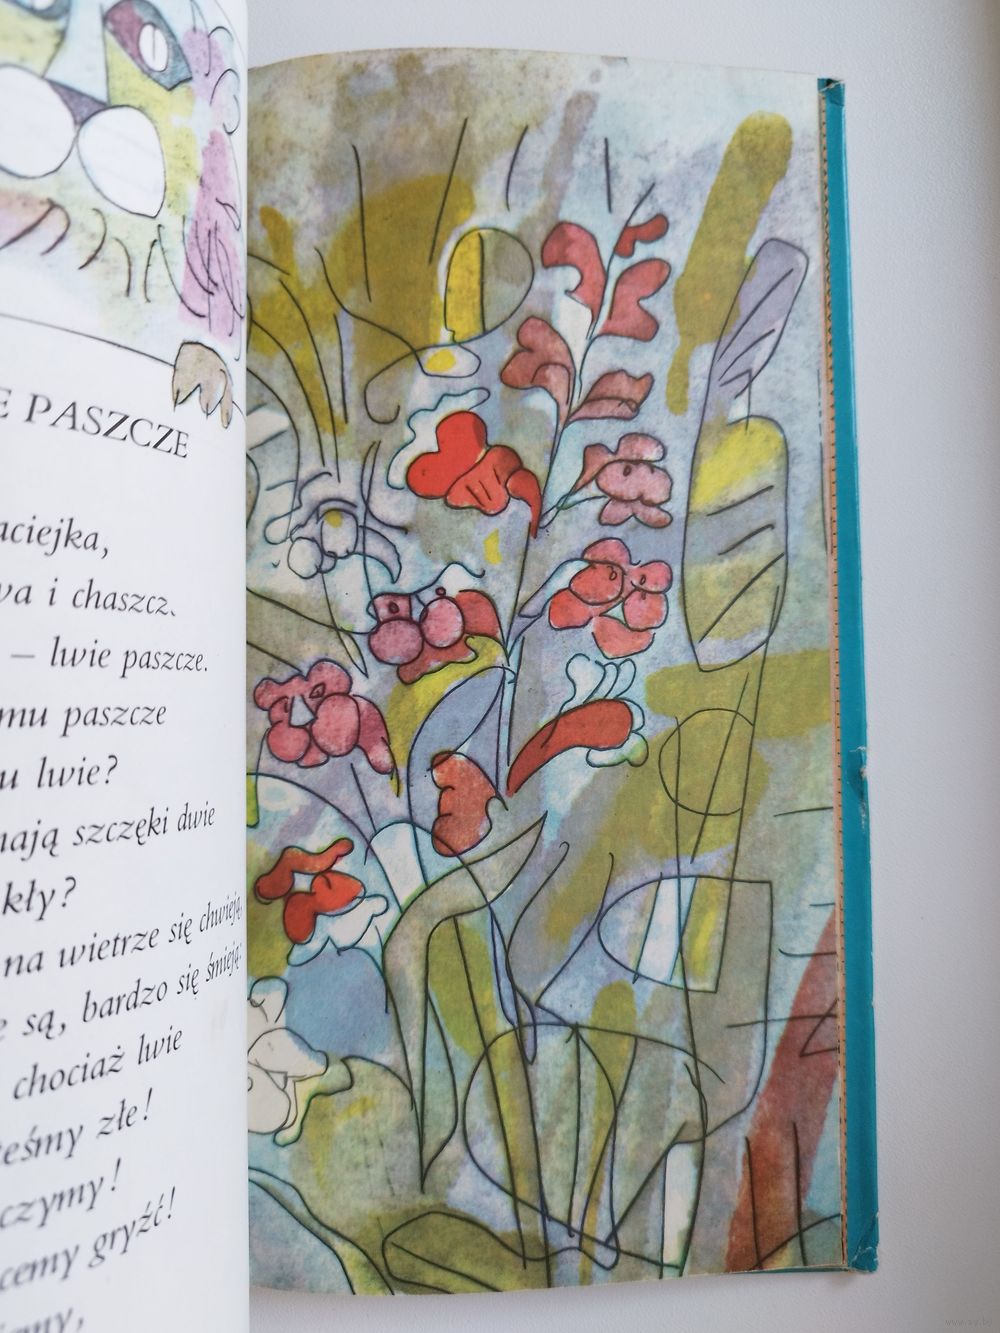 E PASZCZE
aciejka,
va i chaszcz.
– lwie paszcze.
mu paszcze
u lwie?
mają szczęki dwie
kły?
na wietrze się chwieją,
e są, bardzo się śmieją:
chociaż lwie
teśmy złe!
czymy!
cemy gryźć!